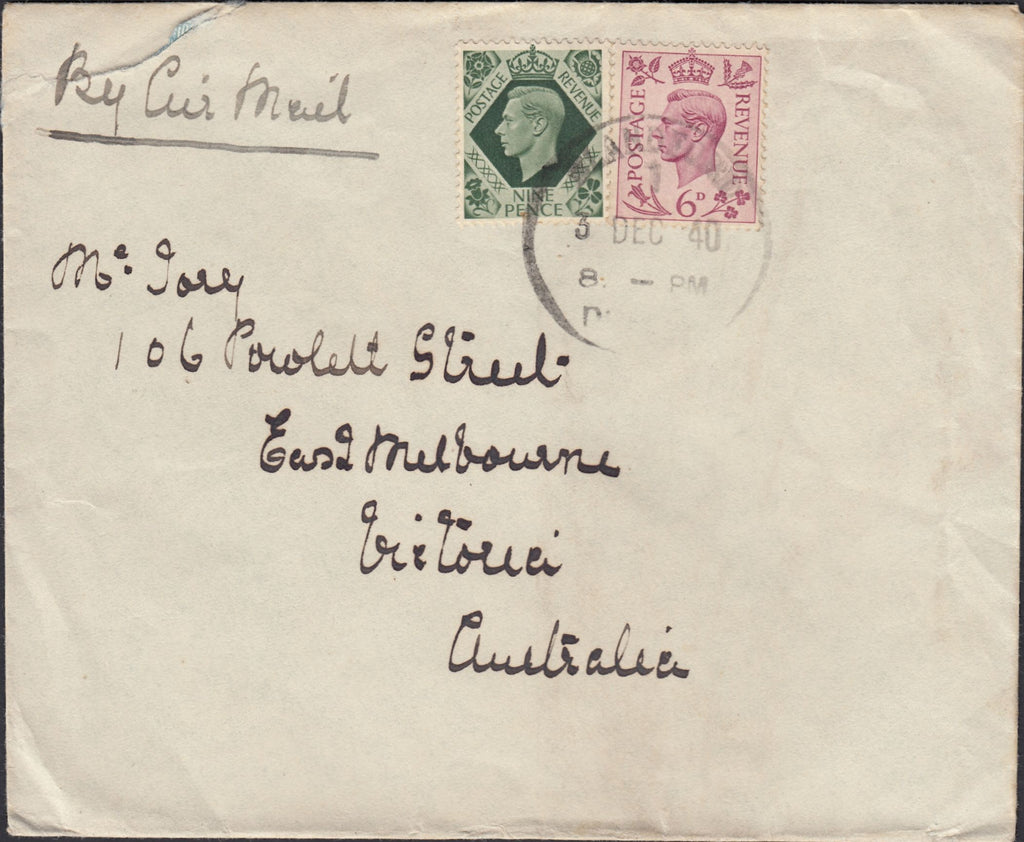 By Air Mail
POSTAGE REVENUE
NINE
PENCE
POSTAGE REVENUE
6D
3 DEC 40
8 - PM
Mr. Jory
106 Powlett Street
East Melbourne
Victoria
Australia